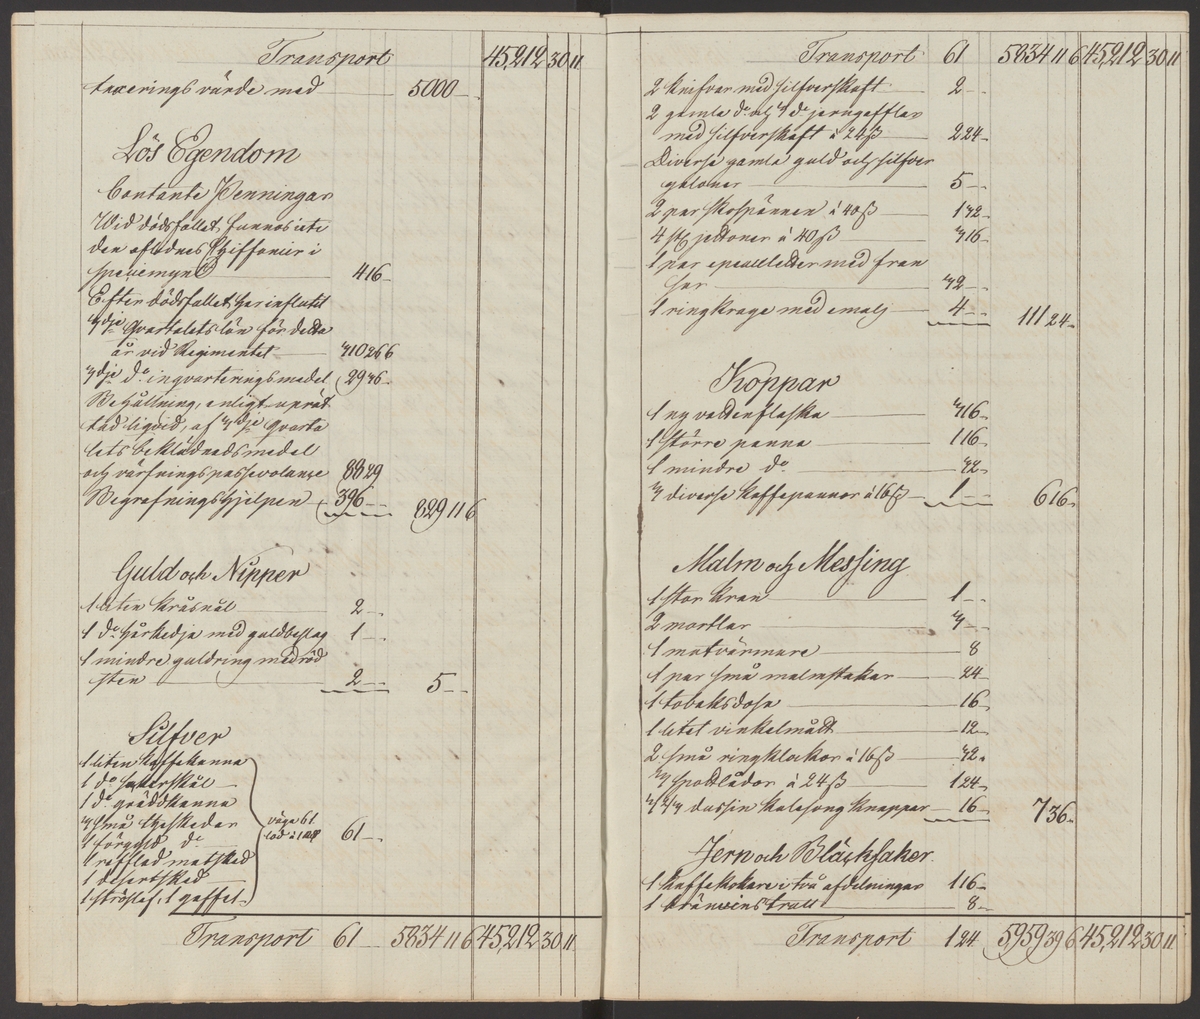 Transport 45,212 30 11
taxerings värde med 5000 —
Lös Egendom
Contante Penningar
Wid dödsfallet funnos uti
den aflednes Chiffonier i
speciemynt 416 —
Efter dödsfallet har influtit
3dje Qvartalets lön för detta
år vid Regimentet 310 26 6
3dje do inqvarteringsmedel 29 36 —
Behållning, enligt uprät
tad liqvid, af 3dje Qvarta
lets beklädnadsmedel
och värfningspassevolance 88 29
Begrafningshjelpen 396 — 829 11 6
Guld och Nipper
1 liten kråsnål 2 —
1 do hårkedja med guldbeslag 1 —
1 mindre guldring med röd
sten 2 — 5 —
Silfver
1 liten kaffekanna
1 do sockerskål
1 do gräddkanna
3 små theskedar
1 förgyld do
1 refflad matsked
1 desertsked
1 ströslef, 1 gaffel
väga 61
lod à 1 Rdr 61 —
Transport 61 — 5834 11 6 45,212 30 11
Transport 61 5834 11 6 45,212 30 11
2 knifvar med silfverskaft 2 —
2 gamla do och 3 do jerngafflar
med silfverskaft à 24 ß 2 24 —
Diverse gamla guld och silfver
galoner 5 —
2 par skospännen à 40 ß 1 32 —
4 st jettoner à 40 ß 3 16 —
1 par epauletter med fran
sar 32 —
1 ringkrage med emalj 4 — 111 24 —
Koppar
1 ny vattenflaska 3 16 —
1 större panna 1 16 —
1 mindre do 32 —
3 diverse kaffepannor à 16 ß 1 — 6 16 —
Malm och Messing
1 stor kran 1 —
2 mortlar 3 —
1 matvärmare 8
1 par små malmstakar 24 —
1 tobaksdosa 16 —
1 litet vinkelmått 12 —
2 små ringklockor à 16 ß 32 —
3 spottlådor à 24 ß 1 24 —
dussin kalesong knappar 16 — 7 36 —
Jern och Bläcksaker
1 kaffekokare i två afdelningar 1 16 —
1 bränvins tratt 8 —
Transport 1 24 5959 39 6 45,212 30 11